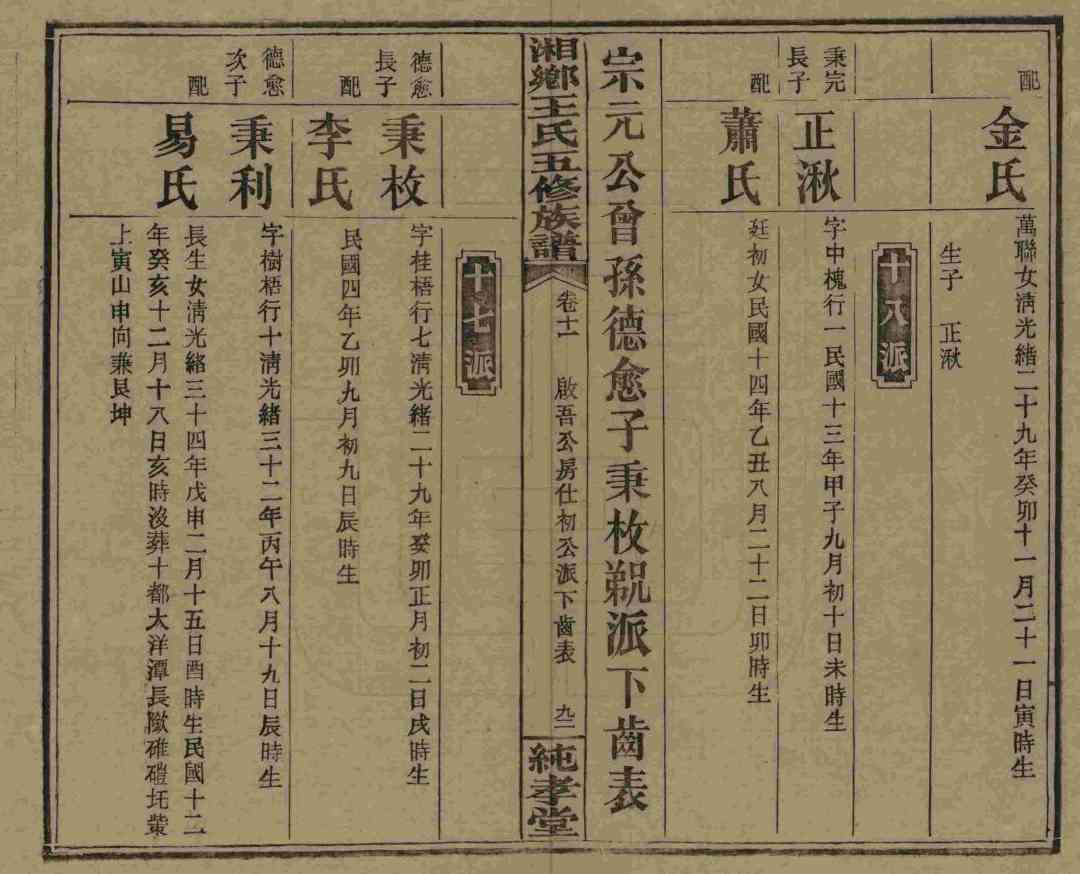 配
金氏
萬聯女清光緒二十九年癸卯十一月二十一日寅時生
生子 正湫
十八派
秉完
長子
正湫
字中槐行一民國十三年甲子九月初十日未時生
配
蕭氏
廷初女民國十四年乙丑八月二十二日卯時生
宗元公曾孫德愈子秉枚 派下齒表
湘鄉王氏五修族譜
卷十一
啟吾公房仕初公派下齒表
九二
純孝堂
十七派
德愈
長子
秉枚
字桂梧行七清光緒二十九年癸卯正月初二日戌時生
配
李氏
民國四年乙卯九月初九日辰時生
德愈
次子
秉利
字樹梧行十清光緒三十二年丙午八月十九日辰時生
配
易氏
長生女清光緒三十四年戊申二月十五日酉時生民國十二
年癸亥十二月十八日亥時沒葬十都大洋潭長 碓磑 塋
上寅山申向兼艮坤